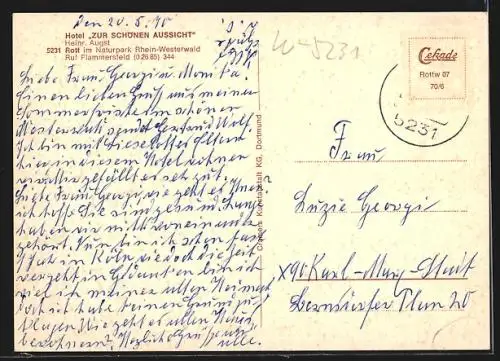 den 20.5.70
Hotel „ZUR SCHÖNEN AUSSICHT"
Heinr. Augst
5231 Rott im Naturpark Rhein-Westerwald
Ruf Flammersfeld (0 26 85) 344
Liebe Frau Georgi u. Monika!
Einen lieben Gruß aus meiner
Sommerfrische im schönen
Westerwald sendet Gertraud Wolf.
Ich bin mit Lieselottes Eltern
hier in diesem Hotel
gefällt es sehr gut.
Liebe Frau Georgi, wie geht es Ihnen?
Ich hoffe Sie sind gesund. Lange
haben wir nichts voneinander
gehört. Nun bin ich schon fast
1 Jahr in Köln, wie doch die Zeit
vergeht. In Gedanken bin ich
viel in meiner alten Heimat
doch ich habe keinen Grund zu
klagen. Wie geht es allen
Herzliche Grüße
alle.
W-5231
Cekade
Rottw 07
70/6
5231
Cramers Kunstanstalt KG, Dortmund
Frau
Luzie Georgi
X90 Karl-Marx-Stadt
Bernsdorfer Plan 20